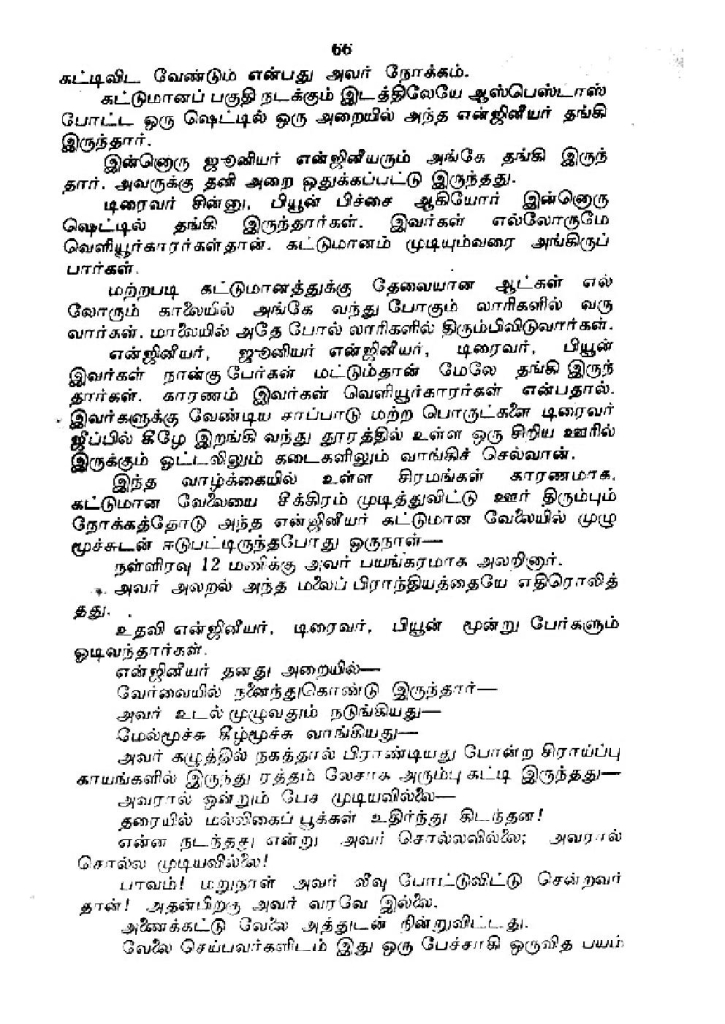 66
கட்டிவிட வேண்டும் என்பது அவர் நோக்கம்.
கட்டுமானப் பகுதி நடக்கும் இடத்திலேயே ஆஸ்பெஸ்டாஸ்
போட்ட ஒரு ஷெட்டில் ஒரு அறையில் அந்த என்ஜினீயர் தங்கி
இருந்தார்.
இன்னொரு ஜூனியர் என்ஜினீயரும் அங்கே தங்கி இருந்
தார். அவருக்கு தனி அறை ஒதுக்கப்பட்டு இருந்தது.
டிரைவர் சின்னு, பியூன் பிச்சை ஆகியோர் இன்னொரு
ஷெட்டில் தங்கி இருந்தார்கள். இவர்கள் எல்லோருமே
வெளியூர்காரர்கள்தான். கட்டுமானம் முடியும்வரை அங்கிருப்
பார்கள்.
மற்றபடி கட்டுமானத்துக்கு தேவையான ஆட்கள் எல்
லோரும் காலையில் அங்கே வந்து போகும் லாரிகளில் வரு
வார்கள். மாலையில் அதே போல் லாரிகளில் திரும்பிவிடுவார்கள்.
என்ஜினீயர், ஜூனியர் என்ஜினீயர், டிரைவர், பியூன்
இவர்கள் நான்கு பேர்கள் மட்டும்தான் மேலே தங்கி இருந்
தார்கள். காரணம் இவர்கள் வெளியூர்காரர்கள் என்பதால்.
இவர்களுக்கு வேண்டிய சாப்பாடு மற்ற பொருட்களை டிரைவர்
ஜீப்பில் கீழே இறங்கி வந்து தூரத்தில் உள்ள ஒரு சிறிய ஊரில்
இருக்கும் ஓட்டலிலும் கடைகளிலும் வாங்கிச் செல்வான்.
இந்த வாழ்க்கையில் உள்ள சிரமங்கள் காரணமாக,
கட்டுமான வேலையை சீக்கிரம் முடித்துவிட்டு ஊர் திரும்பும்
நோக்கத்தோடு அந்த என்ஜினீயர் கட்டுமான வேலையில் முழு
மூச்சுடன் ஈடுபட்டிருந்தபோது ஒருநாள்—
நள்ளிரவு 12 மணிக்கு அவர் பயங்கரமாக அலறினார்.
அவர் அலறல் அந்த மலைப் பிராந்தியத்தையே எதிரொலித்
தது.
உதவி என்ஜினீயர், டிரைவர், பியூன் மூன்று பேர்களும்
ஓடிவந்தார்கள்.
என்ஜினீயர் தனது அறையில்—
வேர்வையில் நனைந்துகொண்டு இருந்தார்—
அவர் உடல் முழுவதும் நடுங்கியது—
மேல்மூச்சு கீழ்மூச்சு வாங்கியது—
அவர் கழுத்தில் நகத்தால் பிராண்டியது போன்ற சிராய்ப்பு
காயங்களில் இருந்து ரத்தம் லேசாக அரும்பு கட்டி இருந்தது—
அவரால் ஒன்றும் பேச முடியவில்லை—
தரையில் மல்லிகைப் பூக்கள் உதிர்ந்து கிடந்தன!
என்ன நடந்தது என்று அவர் சொல்லவில்லை; அவரால்
சொல்ல முடியவில்லை!
பாவம்! மறுநாள் அவர் லீவு போட்டுவிட்டு சென்றவர்
தான்! அதன்பிறகு அவர் வரவே இல்லை.
அணைக்கட்டு வேலை அத்துடன் நின்றுவிட்டது.
வேலை செய்பவர்களிடம் இது ஒரு பேச்சாகி ஒருவித பயம்